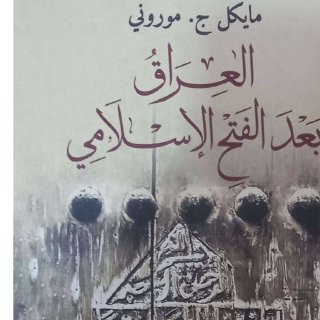 مايكل ج. موروني
العِرَاقُ
بَعْدَ الفَتْحِ الإِسْلَامِي